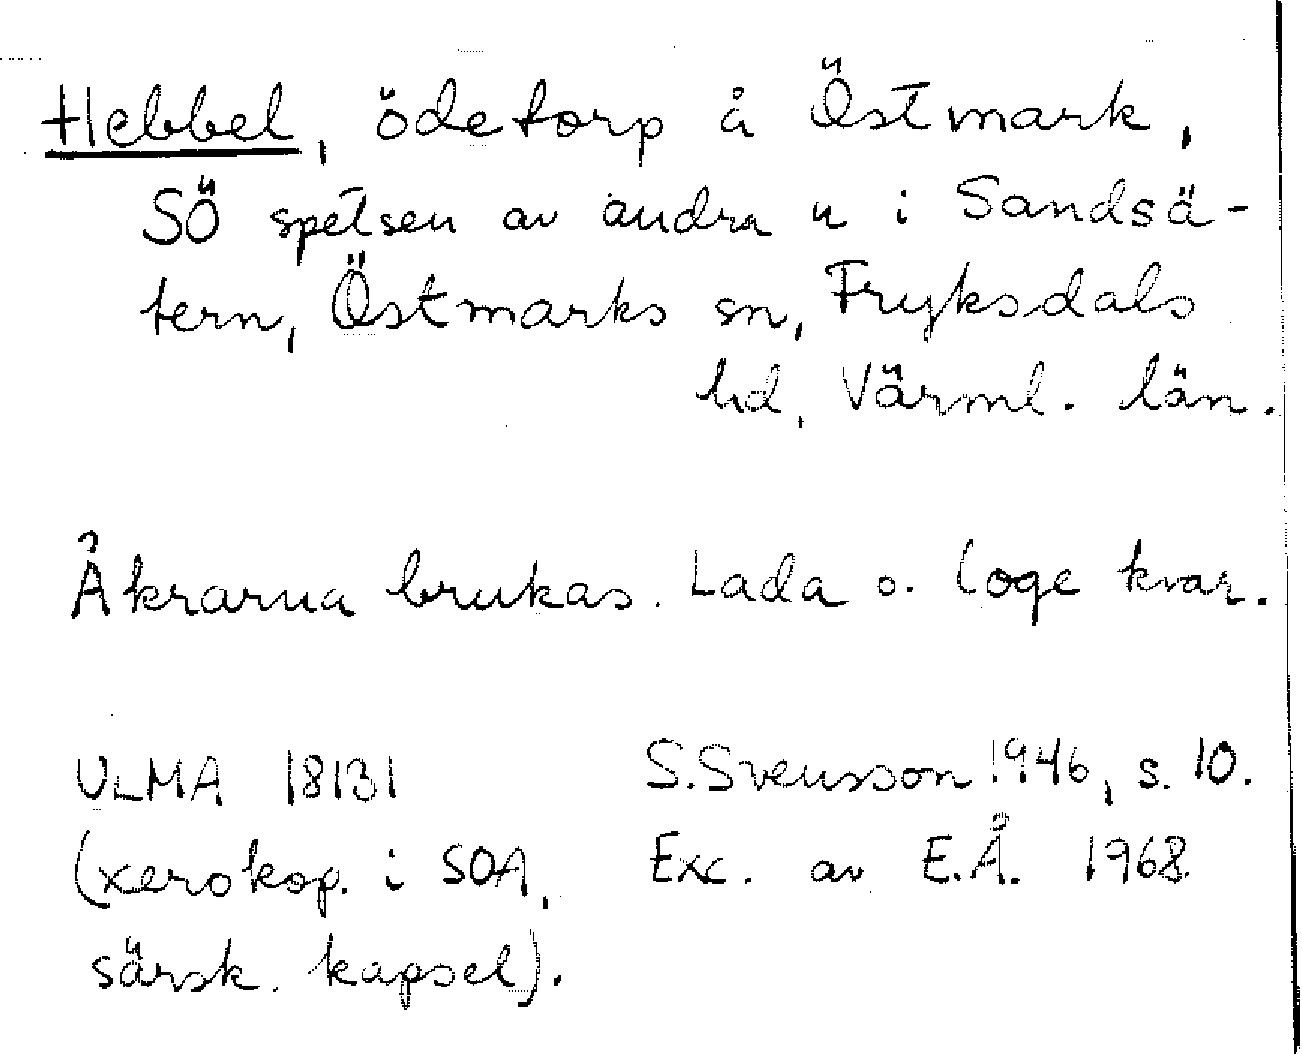 Hebbel, ödetorp å Östmark,
SÖ spetsen av andra n i Sandsä-
tern, Östmarks sn, Fryksdals
hd, Värml. län.
Åkrarna brukas. Lada o. loge kvar.
ULMA 18131 S. Svensson 1946, s. 10.
(xerokop. i SOA, Exc. av E.Å. 1968
särsk. kapsel).